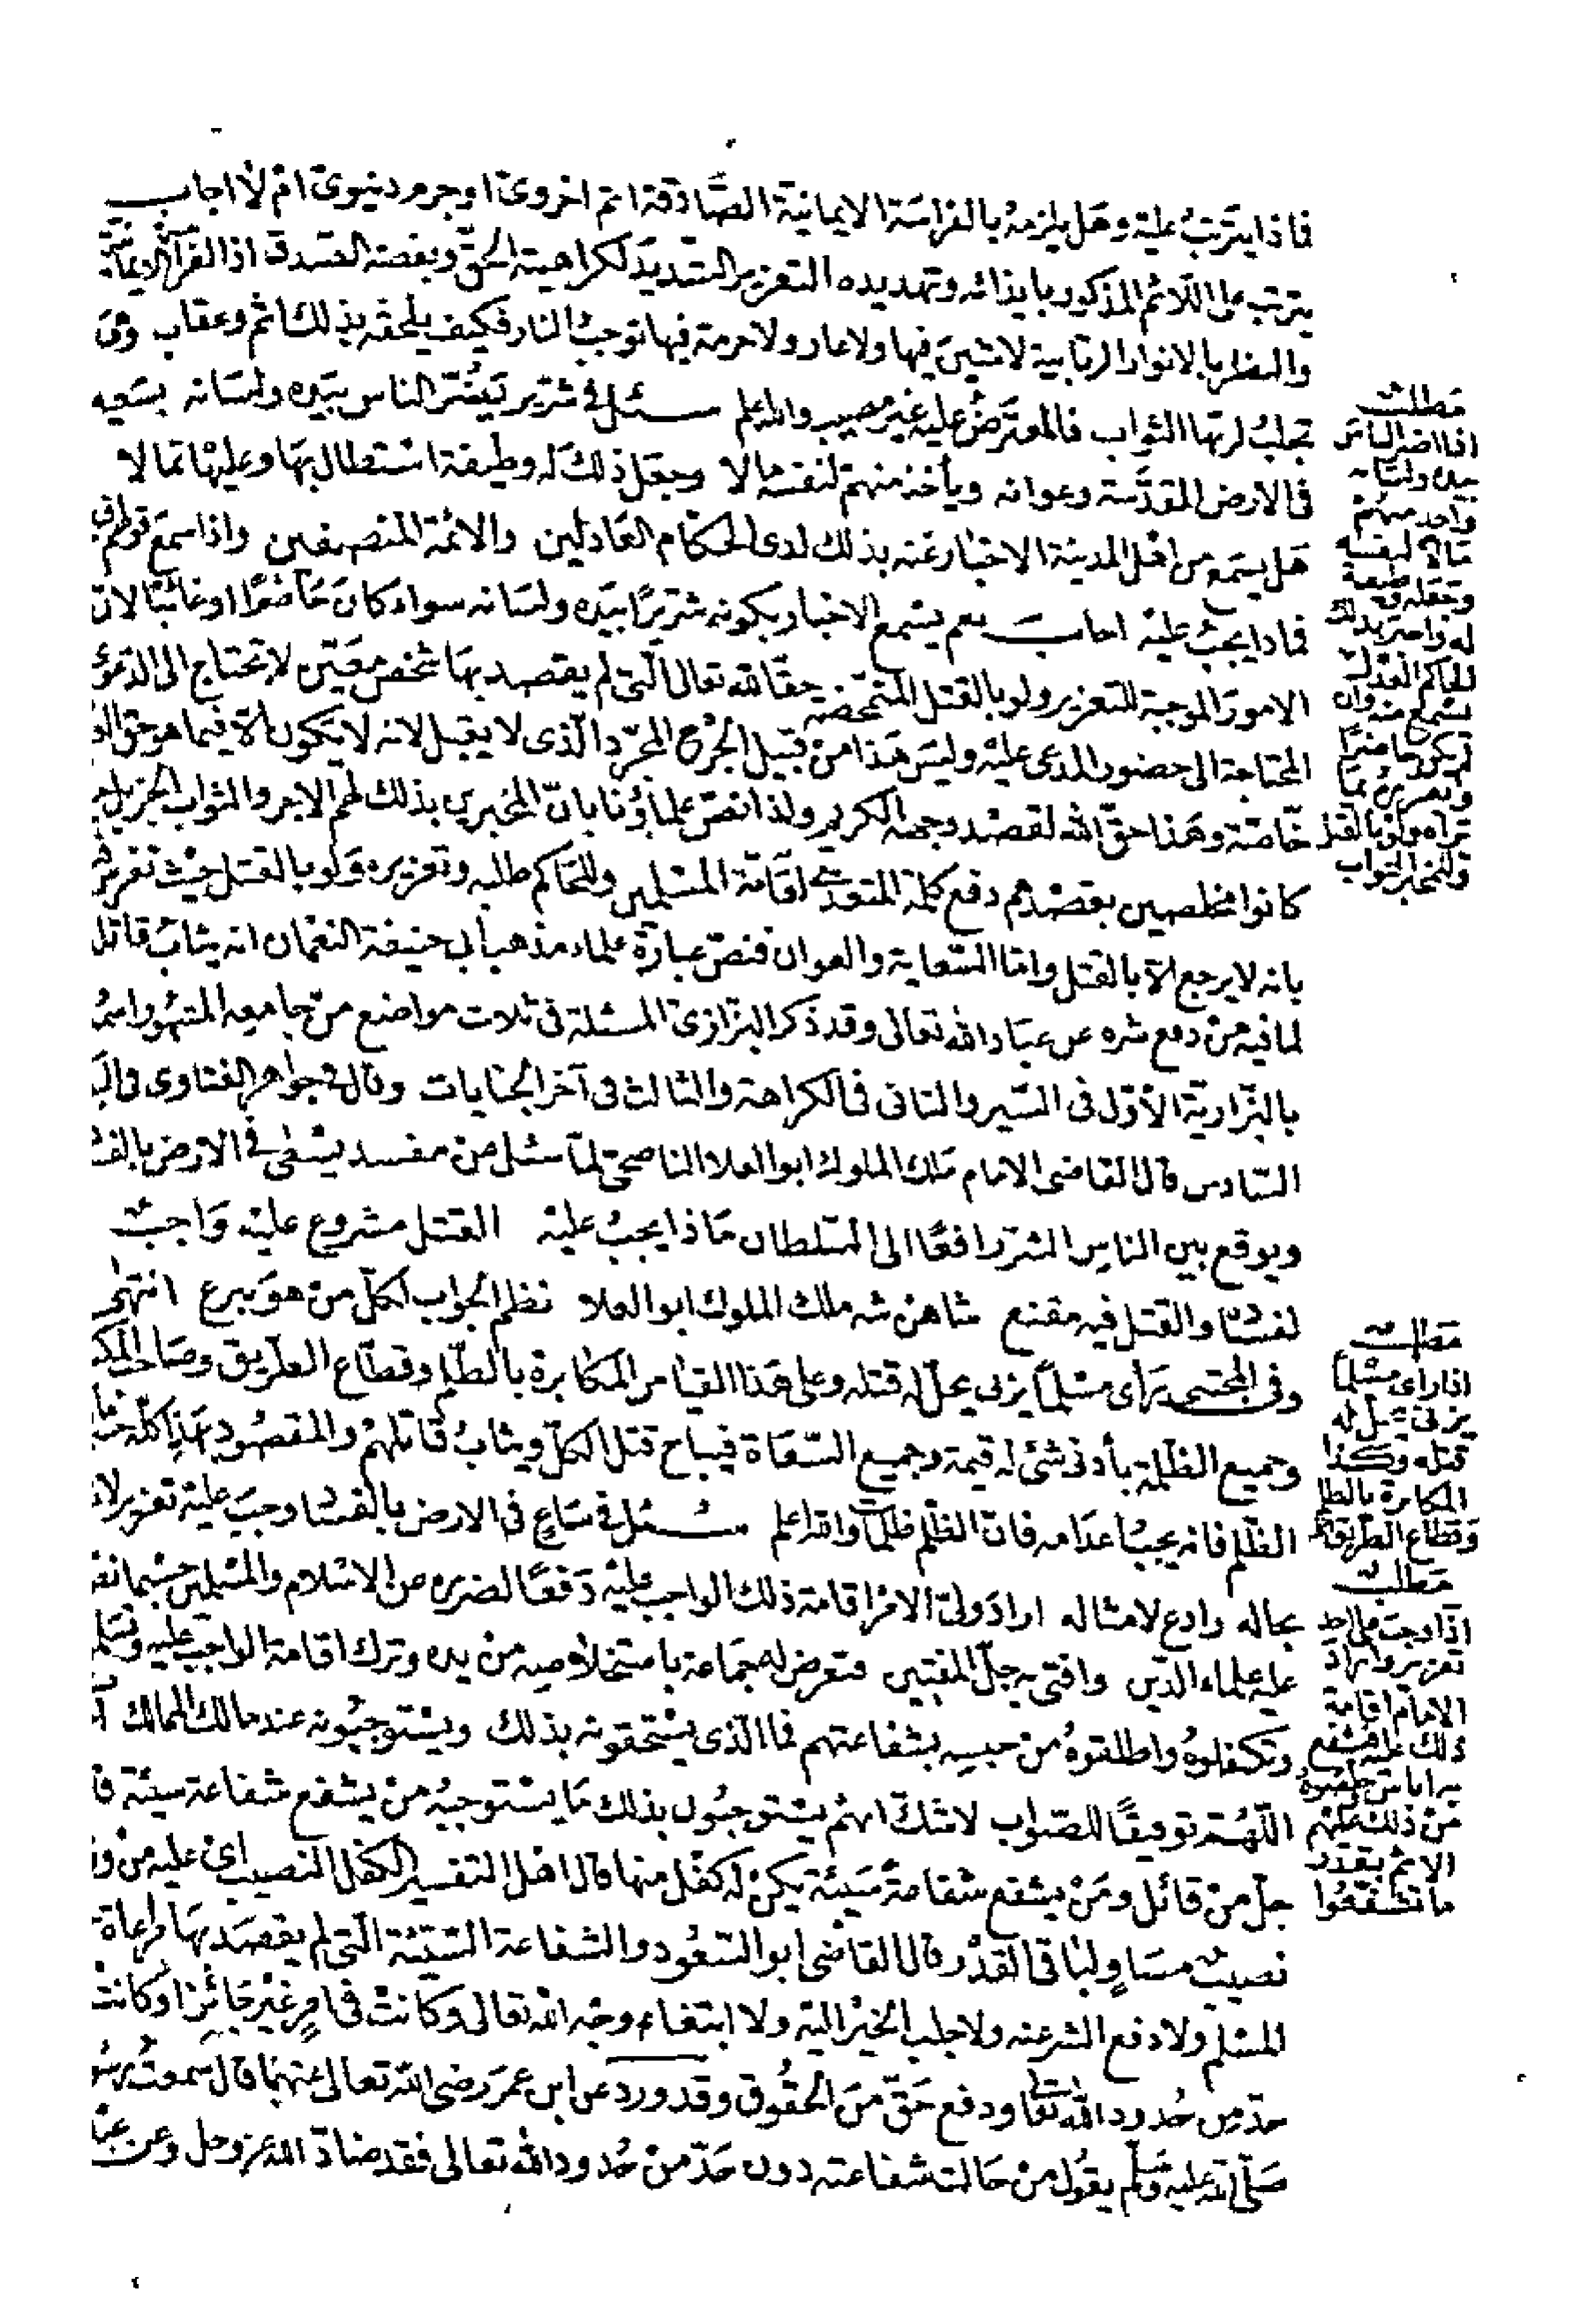 فاذا يترتب عليه وهل يلزمه بالفراسة الايمانية الصادقة اثم اخروى او جرم دنيوى ام لا اجاب
يترتب على اللائم المذكور بايذائه وتهديده التعزير الشديد لكراهيته الحق وبغضه الصدق اذ الفراسة الايمانية
والنظر بالانوار الربانية لا شين فيها ولا عار ولا حرمة فيها توجب النار فكيف يلحقه بذلك اثم وعقاب وهى
تجلب لربها الثواب فالمعترض عليه غير مصيب والله اعلم سئل فى شرير يضر الناس بيده ولسانه بسعيه
فى الارض المقدسة وعوانه ويأخذ منهم لنفسه مالا وجعل ذلك له وظيفة استطال بها وعليها تمالا
هل يسمع من اهل المدينة الاخبار عنه بذلك لدى الحكام العادلين والائمة المنصفين واذا سمع قولهم فيه
فماذا يجب عليه اجاب نعم يسمع الاخبار بكونه شريرا بيده ولسانه سواء كان حاضرا او غائبا لان
الامور الموجبة للتعزير ولو بالقتل المتمحضة حقا لله تعالى التى لم يقصد بها شخص معين لا تحتاج الى الدعوى
المحتاجة الى حضور المدعى عليه وليس هذا من قبيل الجرح المجرد الذى لا يقبل لانه لا يكون الا فيما هو حق
خاصة وهذا حق الله لقصد وجهه الكريم ولذا نص علماؤنا بان المخبرين بذلك لهم الاجر والثواب الجزيل
كانوا مخلصين بقصدهم دفع كلمة المتعدى اقامة المسلمين وللحاكم طلبه وتعزيره ولو بالقتل حيث تقرر
بانه لا يرجع الا بالقتل واما السعاية والعوان فنص عبارة علماء مذهب ابى حنيفة النعمان انه يثاب قاتل
لما فيه من دفع شره عن عباد الله تعالى وقد ذكر البزازى المسئلة فى ثلاث مواضع من جامعه المشهور اسمه
بالبزازية الاول فى السير والثانى فى الكراهة والثالث فى آخر الجنايات وقال فى جواهر الفتاوى فى
السادس قال القاضى الامام ملك الملوك ابو العلا الناصحى لما سئل من مفسد يسعى فى الارض بالفسا
ويوقع بين الناس الشر رافعا الى السلطان ماذا يجب عليه القتل مشروع عليه واجب
لفساد والقتل فيه مقنع شاهن شه ملك الملوك ابو العلا نظم الجواب لكل من هو يبرع انتهى
وفى المجتبى رأى مسلما يزنى يحل له قتله وعلى هذا القياس المكابرة بالظلم وقطاع الطريق وصاحب المكس
وجميع الظلمة بأدنى شئ له قيمة وجميع السعاة فيباح قتل الكل ويثاب قاتلهم والمقصود بهذا كله
الظلم فانه يجب اعدامه فان الظلم ظلمات والله اعلم سئل فى ساع فى الارض بالفساد وجب عليه تعزير لائق
بحاله رادع لامثاله اراد ولى الامر اقامة ذلك الواجب عليه دفعا لضرره عن الاسلام والمسلمين حسبما نص
عليه علماء الدين وافتى به جل المفتين فتعرض له جماعة باستخلاصه من يده وترك اقامة الواجب عليه
وتكفلوه واطلقوه من حبسه بشفاعتهم فما الذى يستحقونه بذلك ويستوجبونه عند مالك الممالك
اللهم توفيقا للصواب لا شك انهم يستوجبون بذلك ما يستوجبه من يشفع شفاعة سيئة
جل من قائل ومن يشفع شفاعة سيئة يكن له كفل منها قال اهل التفسير الكفل النصيب اى عليه من
نصيب مساو لباقى القدر قال القاضى ابو السعود والشفاعة السيئة التى لم يقصد بها مراعاة
المسلم ولا دفع الشر عنه ولا جلب الخير اليه ولا ابتغاء وجه الله تعالى وكانت فى امر غير جائز او كانت
حد من حدود الله تعالى او دفع حق من الحقوق وقد ورد عن ابن عمر رضى الله تعالى عنهما قال سمعت رسو
صلى الله عليه وسلم يقول من حالت شفاعته دون حد من حدود الله تعالى فقد ضاد الله عز وجل وعن
مطلب
اذا اضر الناس
بيده ولسانه
واخذ منهم
مالا لنفسه
وجعله وظيفة
له واخبر بذلك
للحاكم العدل
يسمع منه وان
لم يكن حاضرا
ويعزره بما
يراه ولو بالقتل
وللمخبر الثواب
مطلب
اذا راى مسلما
يزنى يحل له
قتله وكذا
المكابرة بالظلم
وقطاع الطريق
مطلب
اذا وجب على احد
تعزير واراد
الامام اقامة
ذلك عليه فشفع
به اناس
من ذلك عليهم
الاثم بقدر
ما تشفعوا